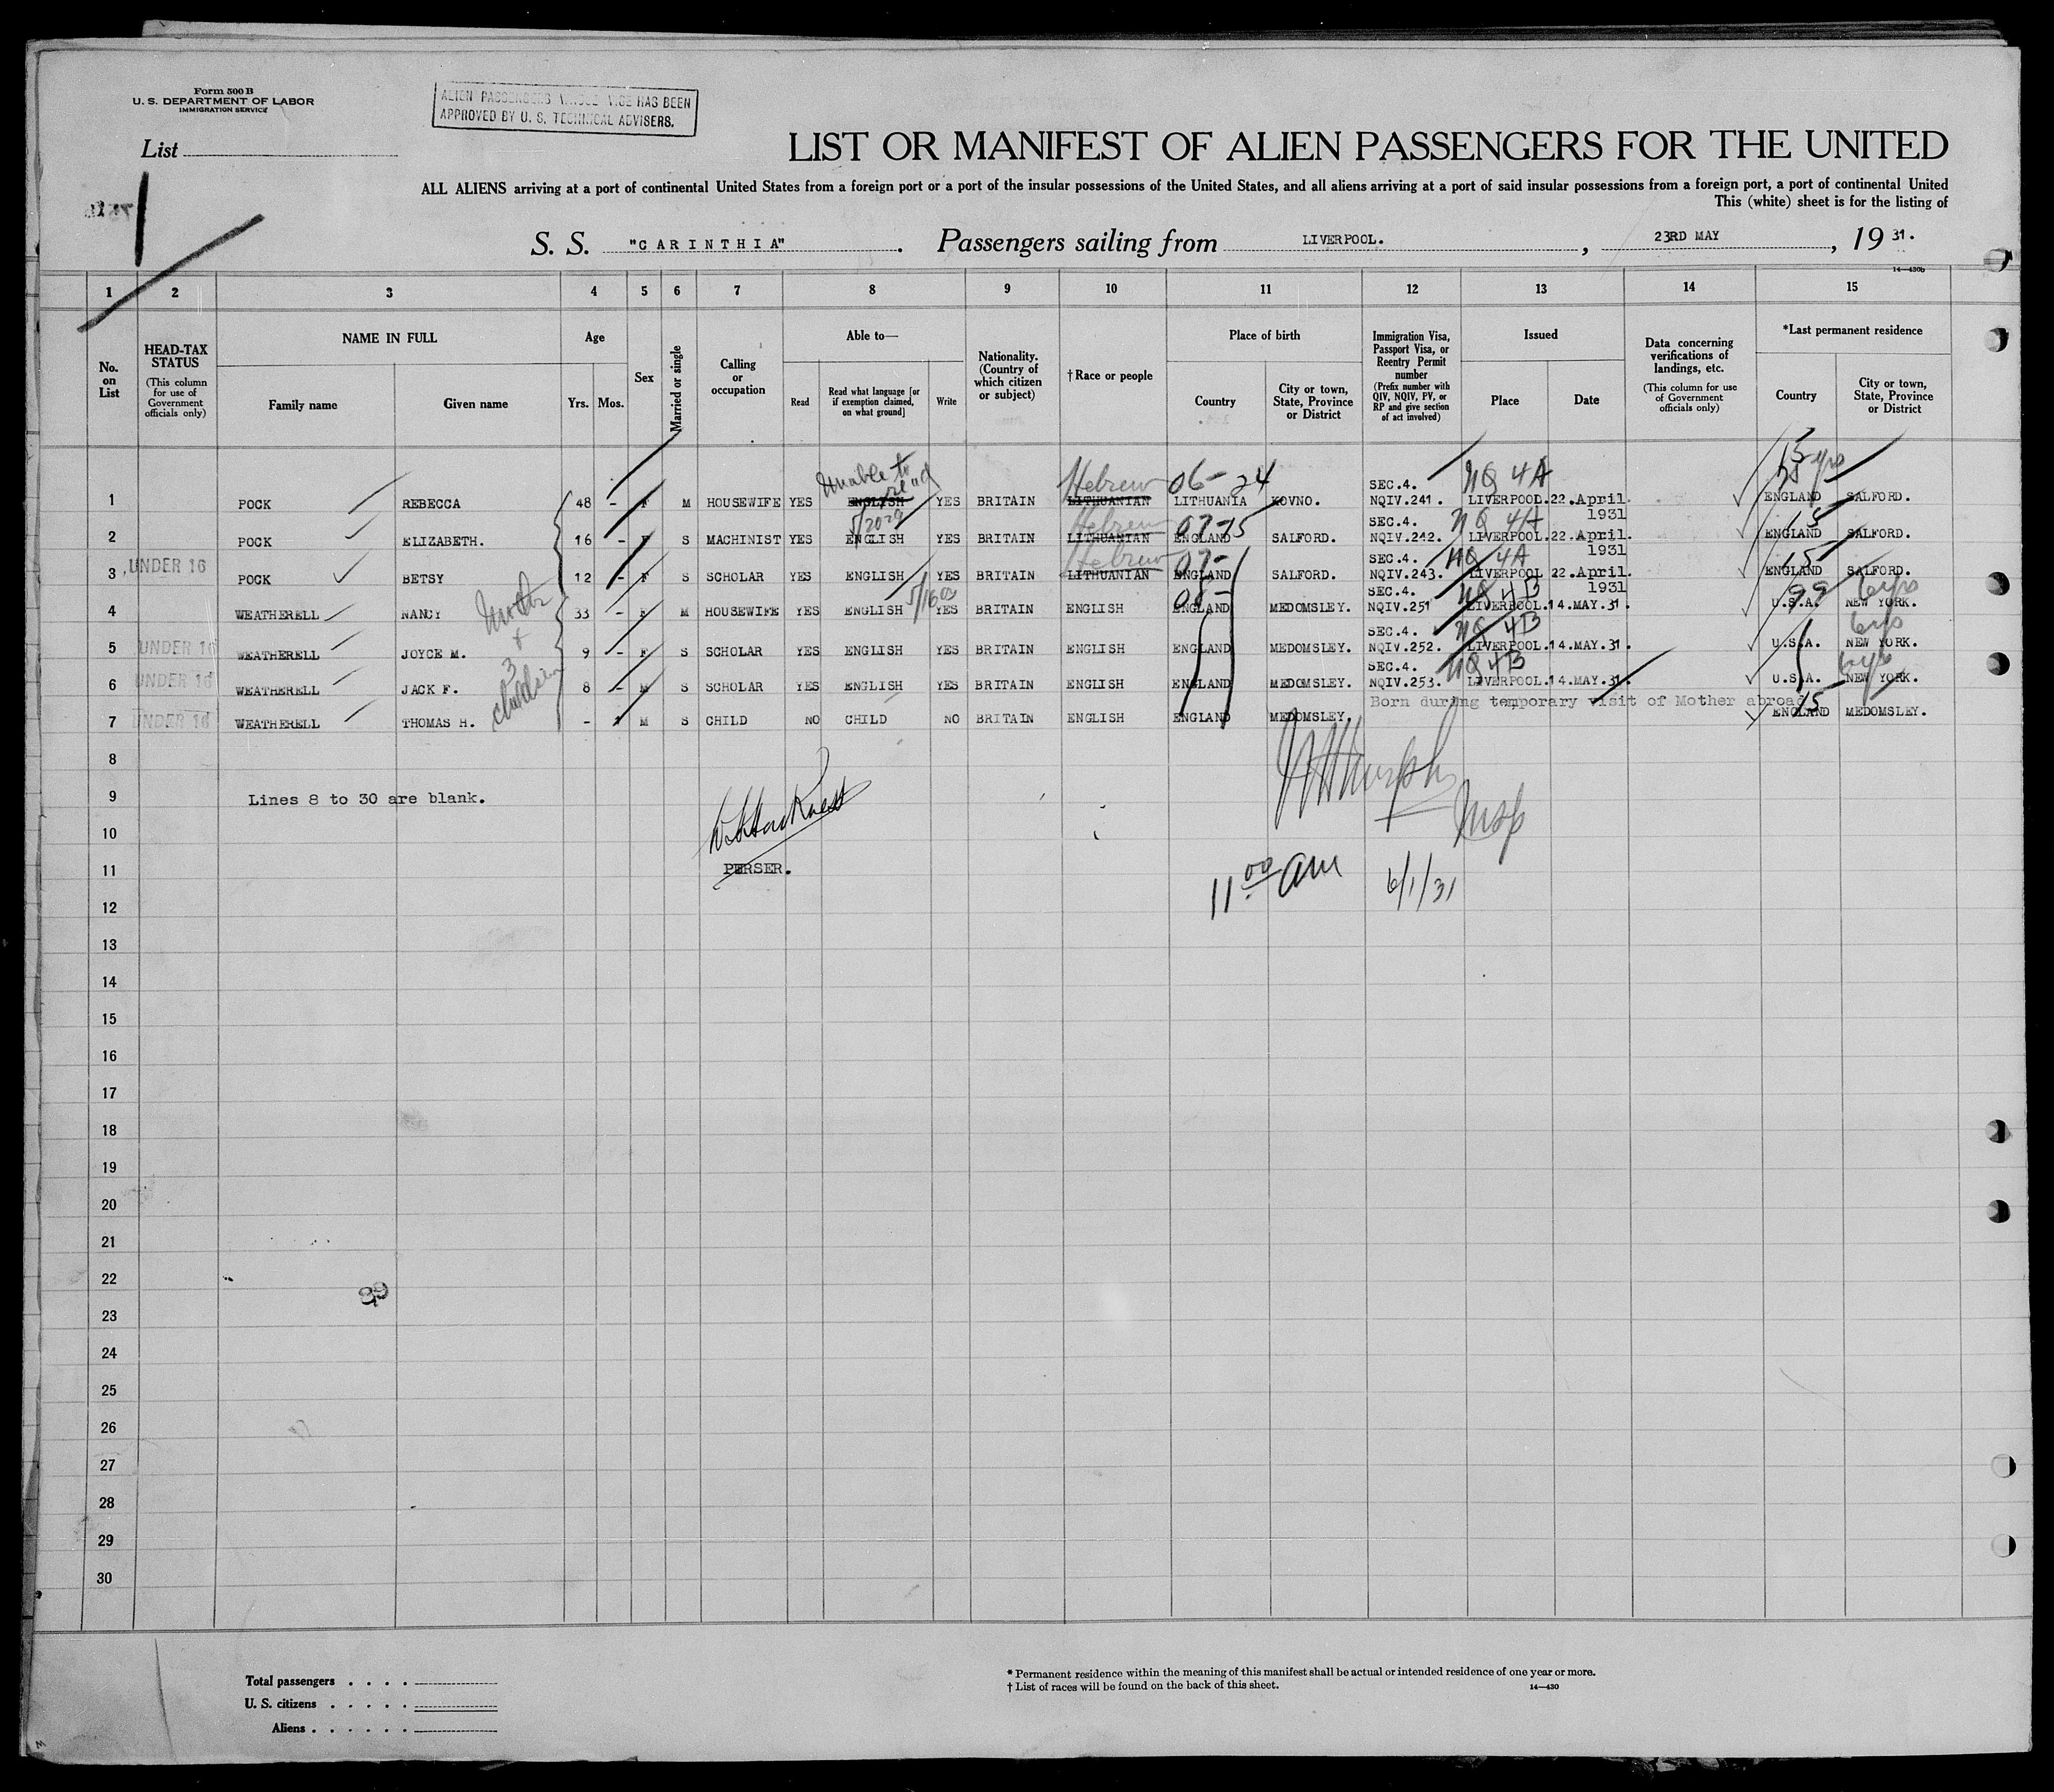 Form 500 B
U. S. DEPARTMENT OF LABOR
IMMIGRATION SERVICE
ALIEN PASSENGERS WHOSE VISE HAS BEEN
APPROVED BY U. S. TECHNICAL ADVISERS.
List
LIST OR MANIFEST OF ALIEN PASSENGERS FOR THE UNITED
ALL ALIENS arriving at a port of continental United States from a foreign port or a port of the insular possessions of the United States, and all aliens arriving at a port of said insular possessions from a foreign port, a port of continental United
This (white) sheet is for the listing of
S. S. "CARINTHIA". Passengers sailing from LIVERPOOL. , 23RD MAY , 19 31.
14—430b
1 2 3 4 5 6 7 8 9 10 11 12 13 14 15
No. on List
HEAD-TAX STATUS (This column for use of Government officials only)
NAME IN FULL Family name Given name
Age Yrs. Mos.
Sex
Married or single
Calling or occupation
Able to— Read Read what language [or if exemption claimed, on what ground] Write
Nationality. (Country of which citizen or subject)
† Race or people
Place of birth Country City or town, State, Province or District
Immigration Visa, Passport Visa, or Reentry Permit number (Prefix number with QIV, NQIV, PV, or RP and give section of act involved)
Issued Place Date
Data concerning verifications of landings, etc. (This column for use of Government officials only)
*Last permanent residence Country City or town, State, Province or District
Unable to read Hebrew 06-24 SEC.4. NQ 4A 15 yrs
1 POCK REBECCA 48 - F M HOUSEWIFE YES ENGLISH YES BRITAIN LITHUANIAN LITHUANIA KOVNO. NQIV.241. LIVERPOOL.22.April. 1931 ENGLAND SALFORD.
Hebrew 07-15 SEC.4. NQ 4A 15
2 POCK ELIZABETH. 16 - F S MACHINIST YES ENGLISH YES BRITAIN LITHUANIAN ENGLAND SALFORD. NQIV.242. LIVERPOOL.22.April. 1931 ENGLAND SALFORD.
Hebrew 07- SEC.4. NQ 4A 15
3 UNDER 16 POCK BETSY 12 - F S SCHOLAR YES ENGLISH YES BRITAIN LITHUANIAN ENGLAND SALFORD. NQIV.243. LIVERPOOL 22.April. 1931 ENGLAND SALFORD.
Mother & 3 children
08- SEC.4. NQ 4B 99 6 yrs
4 WEATHERELL NANCY 33 - F M HOUSEWIFE YES ENGLISH YES BRITAIN ENGLISH ENGLAND MEDOMSLEY. NQIV.251 LIVERPOOL.14.MAY.31. U.S.A. NEW YORK.
SEC.4. NQ 4B 6 yrs
5 UNDER 16 WEATHERELL JOYCE M. 9 - F S SCHOLAR YES ENGLISH YES BRITAIN ENGLISH ENGLAND MEDOMSLEY. NQIV.252. LIVERPOOL.14.MAY.31. U.S.A. NEW YORK.
SEC.4. NQ 4B 6 yrs
6 UNDER 16 WEATHERELL JACK F. 8 - M S SCHOLAR YES ENGLISH YES BRITAIN ENGLISH ENGLAND MEDOMSLEY. NQIV.253. LIVERPOOL.14.MAY.31. U.S.A. NEW YORK.
Born during temporary visit of Mother abroad 15
7 UNDER 16 WEATHERELL THOMAS H. - M S CHILD NO CHILD NO BRITAIN ENGLISH ENGLAND MEDOMSLEY. ENGLAND MEDOMSLEY.
8
Murphy Insp
9 Lines 8 to 30 are blank.
10
11 PURSER.
11 00 am 6/1/31
12
13
14
15
16
17
18
19
20
21
22
23
24
25
26
27
28
29
30
Total passengers . . . .
U. S. citizens . . . . .
Aliens . . . . . .
* Permanent residence within the meaning of this manifest shall be actual or intended residence of one year or more.
† List of races will be found on the back of this sheet.
14—430